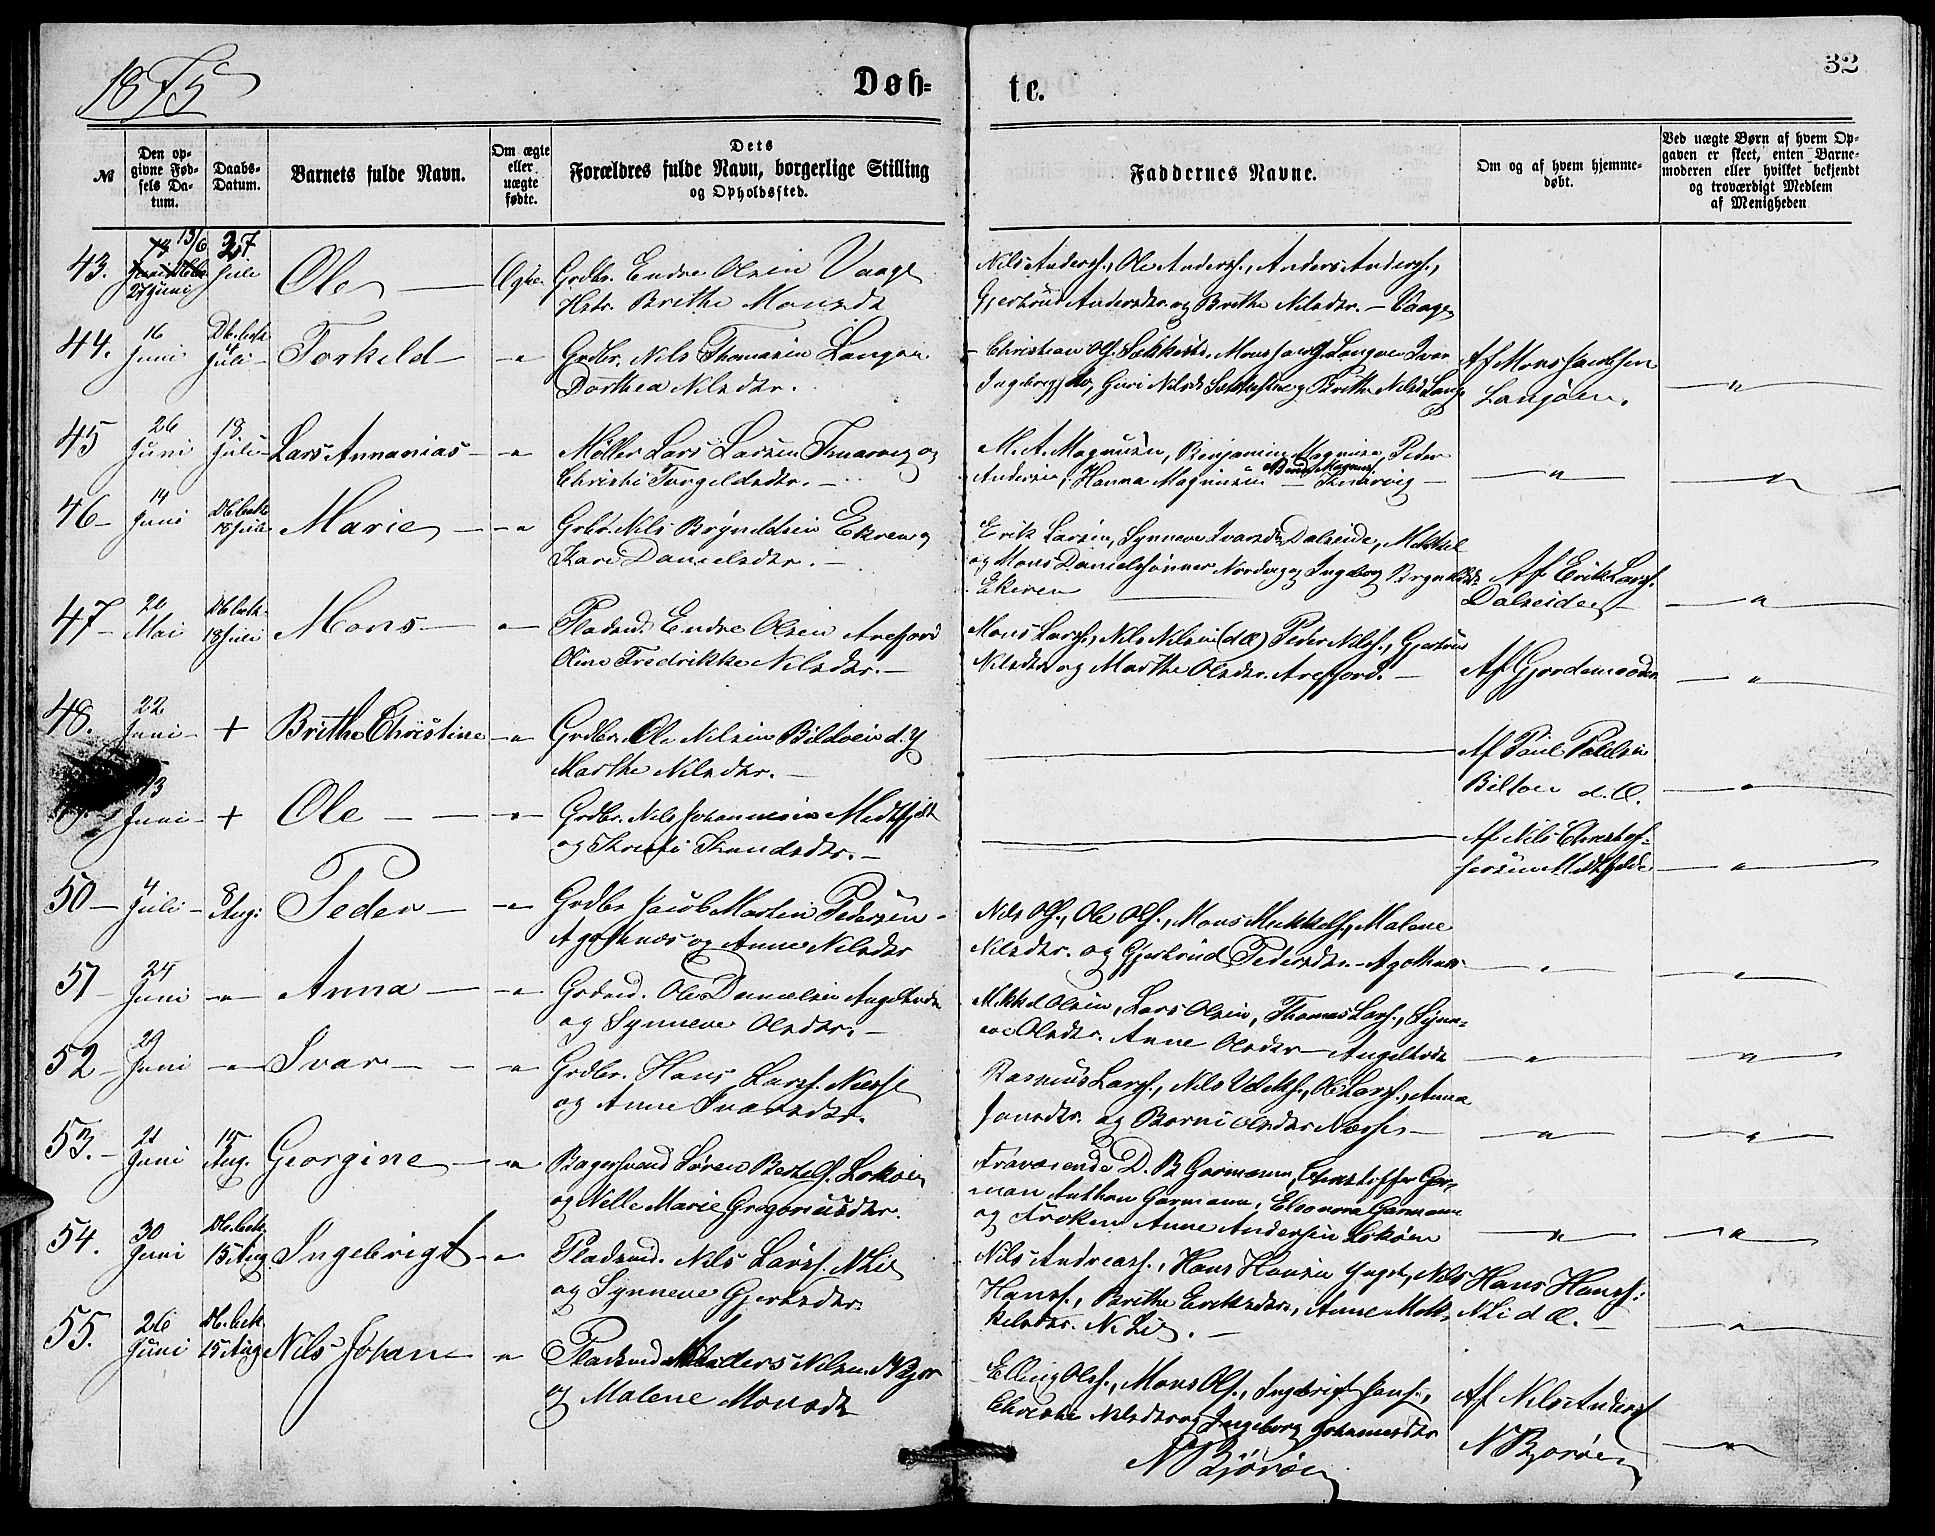 1875
Døb=
te.
32
№
Den op-
givne Fød-
sels Da-
tum.
Daabs-
Datum.
Barnets fulde Navn.
Om ægte
eller
uægte
fødte.
Dets
Forældres fulde Navn, borgerlige Stilling
og Opholdssted.
Faddernes Navne.
Om og af hvem hjemme-
døbt.
Ved uægte Børn af hvem Op-
gaven er skeet, enten Barne-
moderen eller hvilket bekjendt
og troværdigt Medlem
af Menigheden
43.
13/6
27 Juni
Juli
Ole
Ægte.
Grdbr. Endre Olsen Vaage
Hstr. Brithe Monsdt
Nils Anderss., Ole Anderss., Anders Anderss.,
Gjertrud Andersdtr. og Brithe Nilsdtr. - Vaage
44.
16
Juni
Db. bek.
4
Juli
Torkild
Grdbr. Nils Thomasen Langøen
Dorthea Nilsdtr.
Af Mons Jacobsen
Langøen.
45
26
Juni
18
Juli
Lars Annanias
Møller Lars Larsen Knarvig og
Christi Torgeldsdtr.
M. A. Magnusen, Benjamin Magnusen, Peder
Andersen, Hanna Magnusen Knarvig
46
14
Juni
Db. bek.
18 Juli
Marie
Grbr. Nils Brynildsen Ekren og
Kari Danielsdtr.
Erik Larsen, Synneve Ivarsdtr Dalseide, Mikkel
og Mons Danielsønner Nordvig og Ingeborg Brynildsdtr
Ekeren
Af Erik Larss.
Dalseide
47
26
Mai
Db. bek.
18 Juli
Mons
Pladsmd. Endre Olsen Arefjord
Oline Fredrikke Nilsdtr.
Mons Larss., Nils Nilsen (d Æ) Peder Nilss., Gjertrud
Nilsdtr og Marthe Olsdtr. Arefjord.
Af Gjordemoderen
48.
22
Juni
+
Brithe Christine
Grdbr. Ole Nilsen Bildøen d. y
Marthe Nilsdtr.
Af Paul Paulsen
Bildøen d. Æ.
13
Juni
+
Ole
Grdbr. Nils Johannesen Midtfjeld
og Kristi Knudsdtr.
Af Nils Christof-
fersen Midtfjeld
50
4
Juli
8
Aug:
Peder
Grdbr. Jacob Martin Pedersen
Agotnes og Anne Nilsdtr
Nils Ols., Ole Ols., Mons Mikkels., Malene
Nilsdtr. og Gjertrud Pedersdtr. Agotnes
51
24
Juni
Anna
Grdmd. Ole Danielsen Angeltvedt
og Synneve Olsdtr.
Mikkel Olsen, Lars Olsen, Thomas Larss., Synn-
eve Olsdtr. Anne Olsdtr Angeltvedt
52
29
Juni
Ivar
Grdbr. Hans Larss. Næsse
og Anne Ivarsdtr.
Rasmus Larss., Nils Ole Larss., Anna
Jonsdtr. og Borni Olsdtr Næsse
53.
21
Juni
15
Aug.
Georgine
Bagersvend Søren Bertels. Lokøen
og Nelle Marie Gregoriusdtr.
Fraværende D. B Garmann, Christoffer Gar-
man Anthon Garmann, Eleonora Garmann
og Frøken Anne Andersen Lokøen
54.
30
Juni
Db. bek.
15 Aug.
Ingebrigt
Pladsmd. Nils Larss. N Lie
og Synneve Gjertsdtr.
Nils Andreass., Hans Hansen Yngste, Nils
Hanss., Brithe Eriksdtr., Anne Mik-
kelsdtr. N. Lie.
Hans Hanss:
N Li d Æ.
55.
26
Juni
Db. bek.
15 Aug
Nils Johan
Pladsmd Anders Nilsen N Bjor
og Malene Monsdt
Elling Olss., Mons Ols., Ingebrigt Janss.,
Christi Nilsdtr og Ingeborg Johannesdtr
N Bjørøen
Af Nils Anderss
N Bjorøen